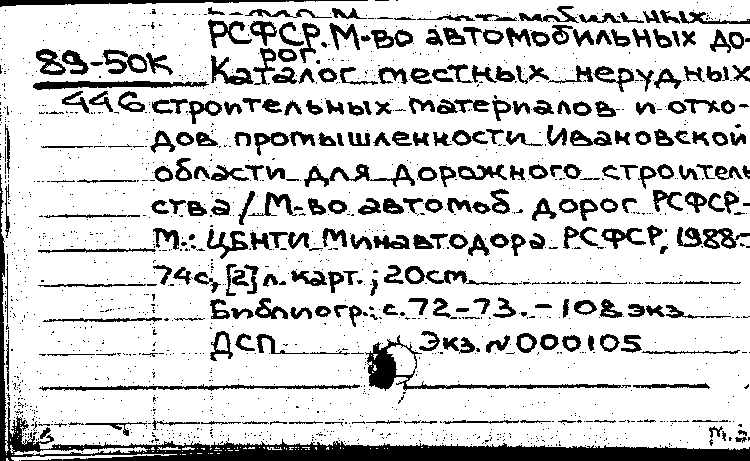 РСФСР. М-во автомобильных до-
рог.
89-50К Каталог местных нерудных
446 строительных материалов и отхо-
дов промышленности Ивановской
области для дорожного строитель
ства / М-во автомоб. дорог РСФСР.-
М.: ЦБНТИ Минавтодора РСФСР, 1988.-
74с, [2] л. карт.; 20см.
Библиогр.: с. 72-73. - 108 экз
ДСП. Экз. № 000105